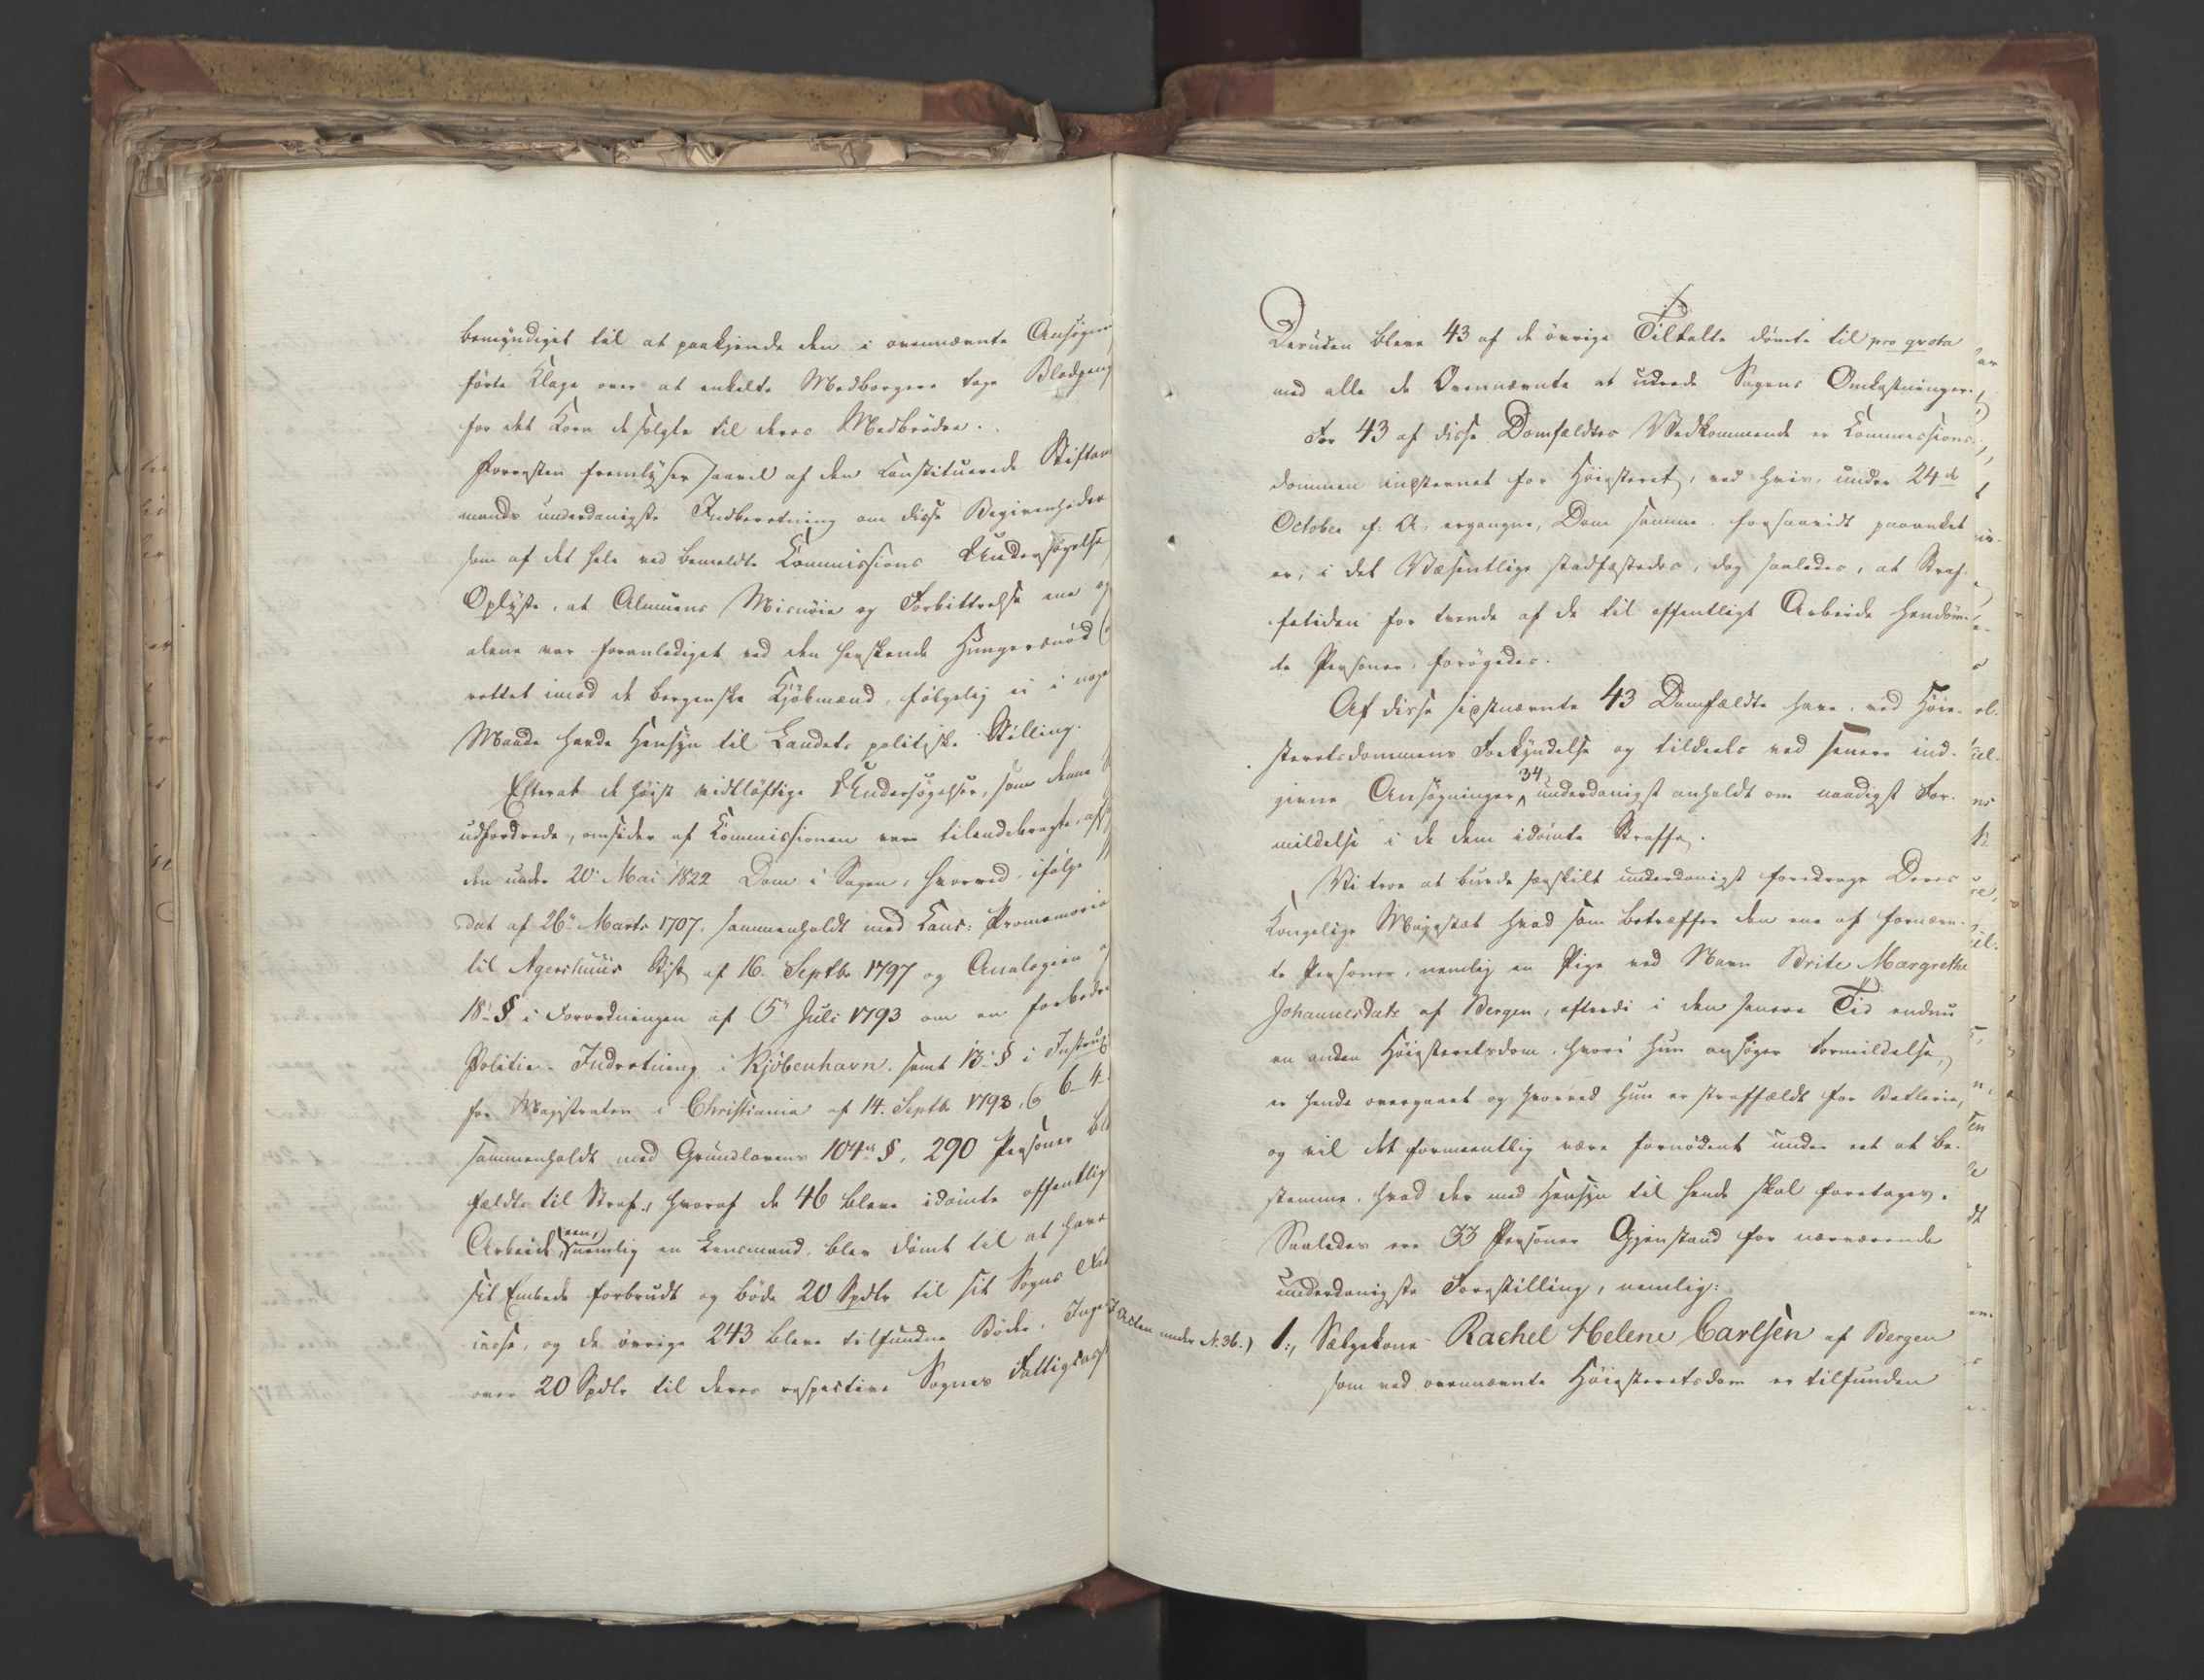 bemyndiget til at paakjende den i ovennævnte Ansøgning
førte Klage over at enkelte Medborgere tage Blodpenge
for det Korn de solgte til deres Medbrødre.
Forresten fremlyser saavel af den constituerede Stiftamt
mands underdanigste Indberetning om disse Begivenheder
som af det hele ved bemeldte Commissions Undersøgelse
Oplyste, at Almuens Misnøie og Forbittrelse ene og
alene var foranlediget ved den herskende Hungersnød
rettet imod de bergenske Kjøbmænd, følgelig ei i nogen
Maade havde Hensyn til Landets politiske Stilling.
Efterat de høist vidtløftige Undersøgelser, som denne
udfordrede, omsider af Commissionen vare tilendebragte, afsagde
den under 20de Mai 1822 Dom i Sagen, hvorved, ifølge
dat af 26de Marts 1707, sammenholdt med Canc: Promemoria
til Agershuus Stift af 16. Septbr 1797 og Analogien af
18de § i Forordningen af 5te Juli 1793 om en forbedret
Politie-Indretning i Kjøbenhavn, samt 13de § i Instruxen
for Magistraten i Christiania af 14. Septbr 1798, 6-4-
sammenholdt med Grundlovens 104de §, 290 Personer bleve
fældte til Straf, hvoraf de 46 bleve idømte offentligt
Arbeide, een, nemlig en Lensmand, blev dømt til at have
sit Embede forbrudt og bøde 20 Spdlr til sit Sogns
casse, og de øvrige 243 bleve tilfundne Bøder, Ingen
over 20 Spdlr til deres respective Sognes Fattigcasse
Desuden bleve 43 af de øvrige Tiltalte dømte til pro qvota
med alle de Ovennævnte at udrede Sagens Omkostninger.
For 43 af disse Domfældtes Vedkommende er Commissions-
dommen indstevnet for Høiesteret, ved hvis, under 24de
October f: A. ergangne, Dom samme, forsaavidt paaanket
er, i det Væsentlige stadfæstedes, dog saaledes, at Straf-
fetiden for trende af de til offentligt Arbeide hendøm-
te Personer, forøgedes.
Af disse sidstnævnte 43 Domfældte have, ved Høie-
steretsdommens Forkyndelse og tildeels ved senere ind-
givne Ansøgninger, 34 underdanigst anholdt om naadigst For-
mildelse i de dem idømte Straffe.
Vi troe at burde særskilt underdanigst foredrage Deres
Kongelige Majestæt hvad som betræffer den ene af fornævn-
te Personer, nemlig en Pige ved Navn Brite Margrethe
Johannesdatr af Bergen, efterdi i den senere Tid endnu
en anden Høiesteretsdom, hvori hun ansøger Formildelse,
er hende overgaaet og hvorved hun er straffældt for Betlerie,
og vil det formeentlig være fornødent under eet at be-
stemme, hvad der med Hensyn til hende skal foretages.
Saaledes ere 33 Personer Gjenstand for nærværende
underdanigste Forestilling, nemlig:
Acten under N. 36.) 1:, Sælgekone Rachel Helene Carlsen af Bergen
som ved ovennævnte Høiesteretsdom er tilfunden